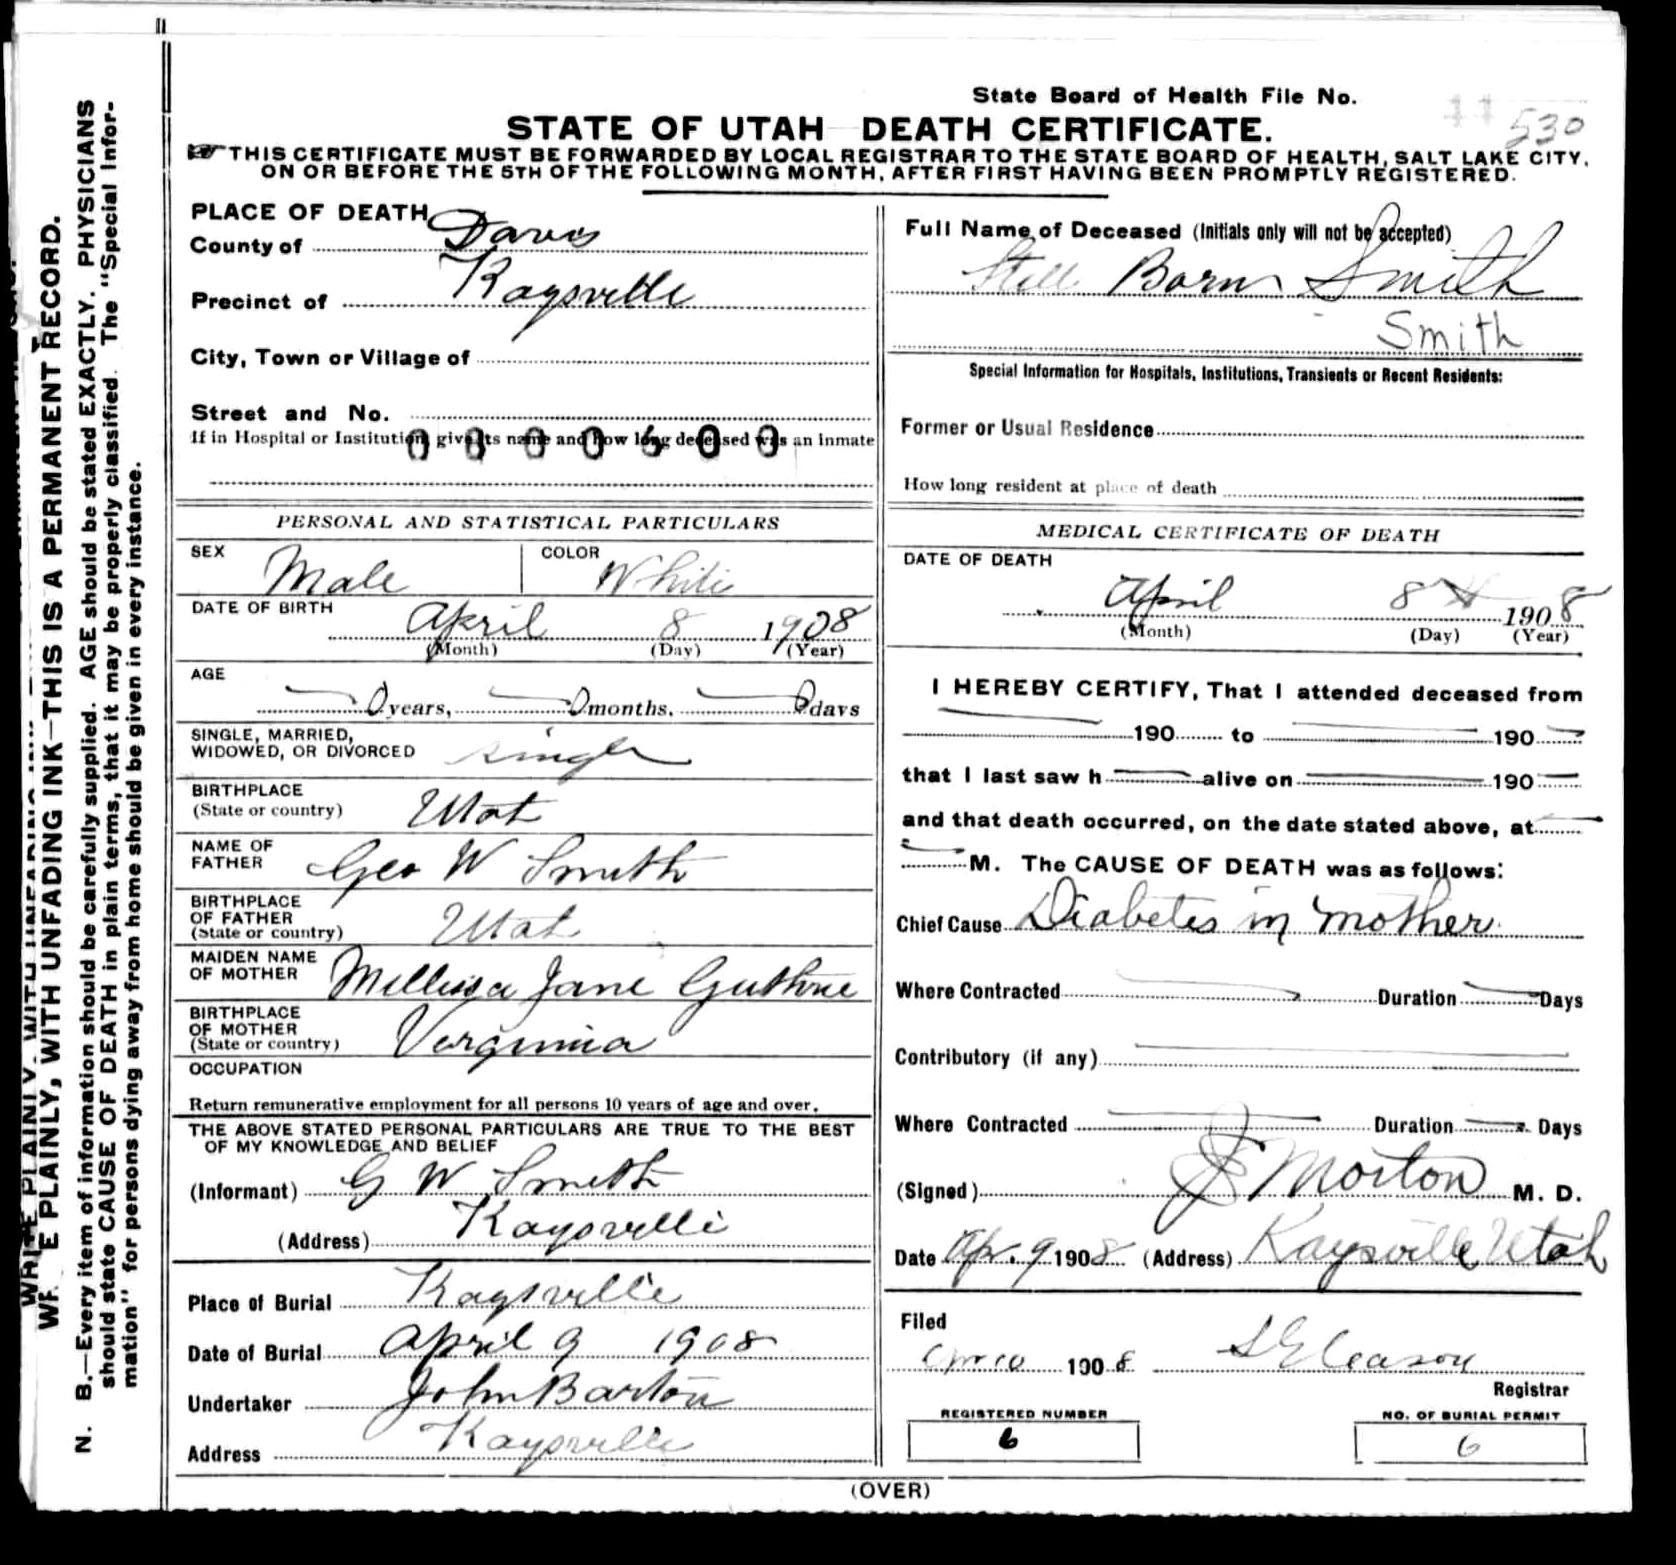 State Board of Health File No.
530
STATE OF UTAH DEATH CERTIFICATE.
THIS CERTIFICATE MUST BE FORWARDED BY LOCAL REGISTRAR TO THE STATE BOARD OF HEALTH, SALT LAKE CITY,
ON OR BEFORE THE 5TH OF THE FOLLOWING MONTH, AFTER FIRST HAVING BEEN PROMPTLY REGISTERED.
WRITE PLAINLY, WITH UNFADING INK—THIS IS A PERMANENT RECORD.
N. B.—Every item of information should be carefully supplied. AGE should be stated EXACTLY. PHYSICIANS
should state CAUSE OF DEATH in plain terms, that it may be properly classified. The "Special Infor-
mation" for persons dying away from home should be given in every instance.
PLACE OF DEATH
County of Davis
Precinct of Kaysville
City, Town or Village of
Street and No.
If in Hospital or Institution, give its name and how long deceased was an inmate
0000600
PERSONAL AND STATISTICAL PARTICULARS
SEX Male COLOR White
DATE OF BIRTH April 8 1908
(Month) (Day) (Year)
AGE
0 years, 0 months. 0 days
SINGLE, MARRIED,
WIDOWED, OR DIVORCED single
BIRTHPLACE
(State or country) Utah
NAME OF
FATHER Geo W Smith
BIRTHPLACE
OF FATHER
(State or country) Utah
MAIDEN NAME
OF MOTHER Mellissa Jane Guthrie
BIRTHPLACE
OF MOTHER
(State or country) Verginia
OCCUPATION
Return remunerative employment for all persons 10 years of age and over.
THE ABOVE STATED PERSONAL PARTICULARS ARE TRUE TO THE BEST
OF MY KNOWLEDGE AND BELIEF
(Informant) G W Smith
(Address) Kaysville
Place of Burial Kaysville
Date of Burial April 9 1908
Undertaker John Barton
Address Kaysville
Full Name of Deceased (Initials only will not be accepted)
Still Born Smith
Smith
Special Information for Hospitals, Institutions, Transients or Recent Residents:
Former or Usual Residence
How long resident at place of death
MEDICAL CERTIFICATE OF DEATH
DATE OF DEATH
April 8 1908
(Month) (Day) (Year)
I HEREBY CERTIFY, That I attended deceased from
190 to 190
that I last saw h alive on 190
and that death occurred, on the date stated above, at
M. The CAUSE OF DEATH was as follows:
Chief Cause Diabetes in mother.
Where Contracted Duration Days
Contributory (if any)
Where Contracted Duration Days
(Signed) Morton M. D.
Date Apr. 9 1908 (Address) Kaysville Utah
Filed
10 1908
Registrar
REGISTERED NUMBER
6
NO. OF BURIAL PERMIT
6
(OVER)